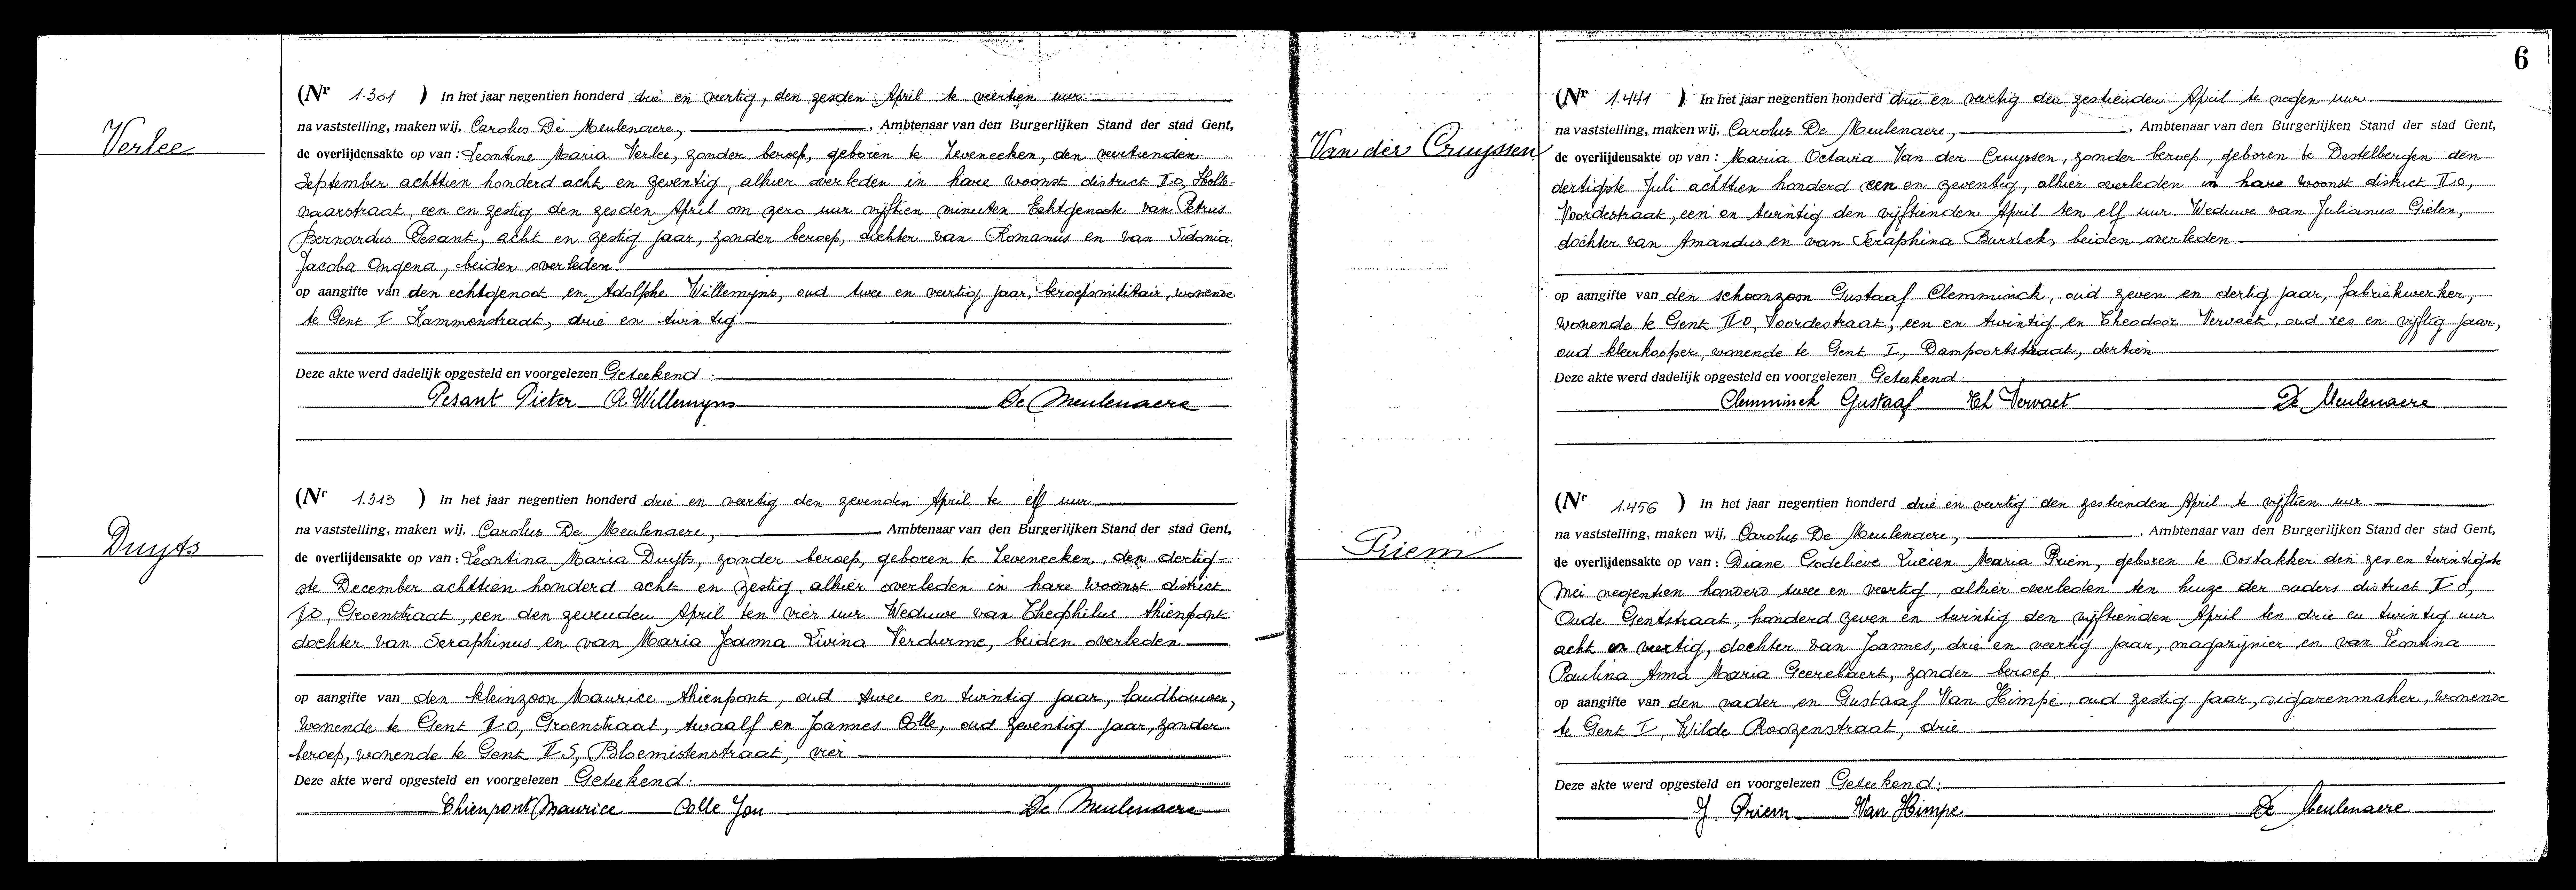 Verlee
(Nr 1.301 ) In het jaar negentien honderd drie en veertig, den zesden April te veertien uur
na vaststelling, maken wij, Carolus De Meulenaere, , Ambtenaar van den Burgerlijken Stand der stad Gent,
de overlijdensakte op van : Leontine Maria Verlee, zonder beroep, geboren te Zeveneeken, den veertienden
September achttien honderd acht en zeventig, alhier overleden in hare woonst district II O, Holle-
naarstraat, een en zestig den zesden April om zero uur vijftien minuten Echtgenoote van Petrus
Bernardus Pesant, acht en zestig jaar, zonder beroep, dochter van Romanus en van Sidonia
Jacoba Ongena, beiden overleden
op aangifte van den echtgenoot en Adolphe Willemyns, oud twee en veertig jaar, beroepsmilitair, wonende
te Gent I Kammenstraat, drie en twintig
Deze akte werd dadelijk opgesteld en voorgelezen Geteekend :
Pesant Pieter A. Willemyns De Meulenaere
Duyts
(Nr 1.313 ) In het jaar negentien honderd drie en veertig den zevenden April te elf uur
na vaststelling, maken wij, Carolus De Meulenaere, Ambtenaar van den Burgerlijken Stand der stad Gent,
de overlijdensakte op van : Leontina Maria Duyts, zonder beroep, geboren te Zeveneeken, den dertig-
ste December achttien honderd acht en zestig, alhier overleden in hare woonst district
II O, Groenstraat, een den zevenden April ten vier uur Weduwe van Theophilus Thienpont
dochter van Seraphinus en van Maria Joanna Livina Verdurme, beiden overleden
op aangifte van den kleinzoon Maurice Thienpont, oud twee en twintig jaar, landbouwer,
wonende te Gent II O, Groenstraat, twaalf en Joannes Colle, oud zeventig jaar, zonder
beroep, wonende te Gent II S, Bloemistenstraat, vier
Deze akte werd opgesteld en voorgelezen Geteekend:
Thienpont Maurice Colle Jan De Meulenaere
6
Van der Cruyssen
(Nr 1.441 ) In het jaar negentien honderd drie en veertig den zestienden April te negen uur
na vaststelling, maken wij, Carolus De Meulenaere, , Ambtenaar van den Burgerlijken Stand der stad Gent,
de overlijdensakte op van : Maria Octavia Van der Cruyssen, zonder beroep, geboren te Destelbergen den
dertigste Juli achttien honderd een en zeventig, alhier overleden in hare woonst district II O,
Voordestraat, een en twintig den vijftienden April ten elf uur Weduwe van Julianus Gielen,
dochter van Amandus en van Seraphina Burrick, beiden overleden
op aangifte van den schoonzoon Gustaaf Clemminck, oud zeven en dertig jaar, fabriekwerker,
wonende te Gent II O, Voordestraat, een en twintig en Theodoor Vervaet, oud zes en vijftig jaar,
oud kleerkooper, wonende te Gent I, Dampoortstraat, dertien
Deze akte werd dadelijk opgesteld en voorgelezen Geteekend:
Clemminck Gustaaf Th Vervaet De Meulenaere
Priem
(Nr 1.456 ) In het jaar negentien honderd drie en veertig den zestienden April te vijftien uur
na vaststelling, maken wij, Carolus De Meulenaere, , Ambtenaar van den Burgerlijken Stand der stad Gent,
de overlijdensakte op van : Diane Godelieve Lucien Maria Priem, geboren te Oostakker den zes en twintigste
Mei negentien honderd twee en veertig, alhier overleden ten huize der ouders district II O,
Oude Gentstraat, honderd zeven en twintig den vijftienden April ten drie en twintig uur
acht en veertig, dochter van Joannes, drie en veertig jaar, magazijnier en van Leontina
Paulina Anna Maria Geerebaert, zonder beroep
op aangifte van den vader en Gustaaf Van Himpe, oud zestig jaar, sigarenmaker, wonende
te Gent I, Wilde Roozenstraat, drie
Deze akte werd opgesteld en voorgelezen Geteekend:
J. Priem Van Himpe De Meulenaere